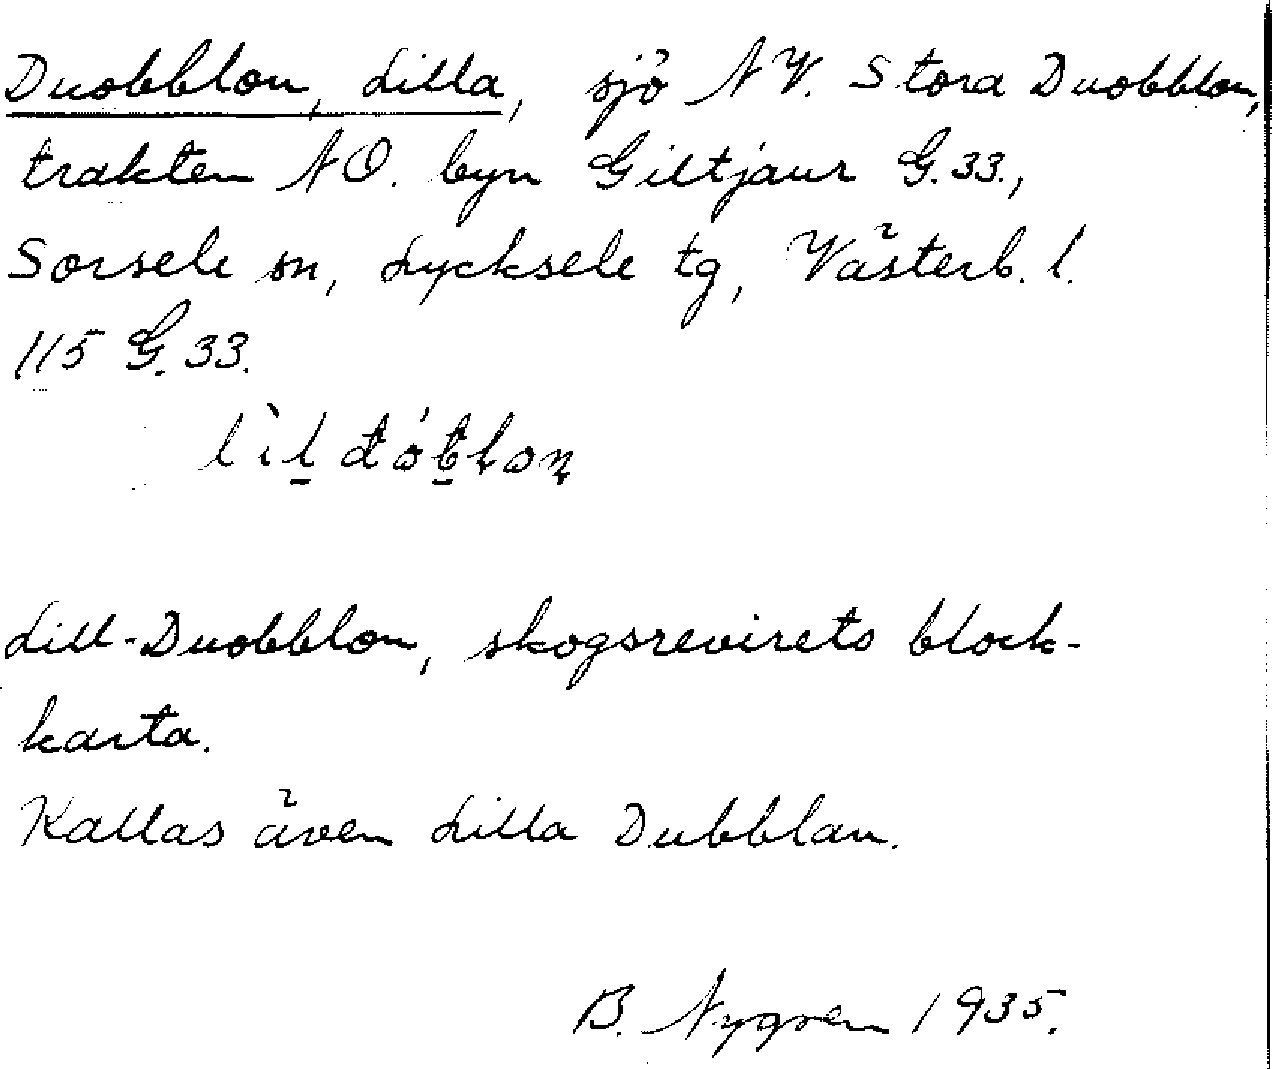 Duobblon, Lilla, sjö NV. Stora Duobblon,
trakten NO. byn Giltjaur G.33.,
Sorsele sn, Lycksele tg, Västerb. l.
115 G.33.
Lill-Duobblon, skogsrevirets block-
karta.
Kallas även Lilla Dubblan.
B. Nygren 1935.